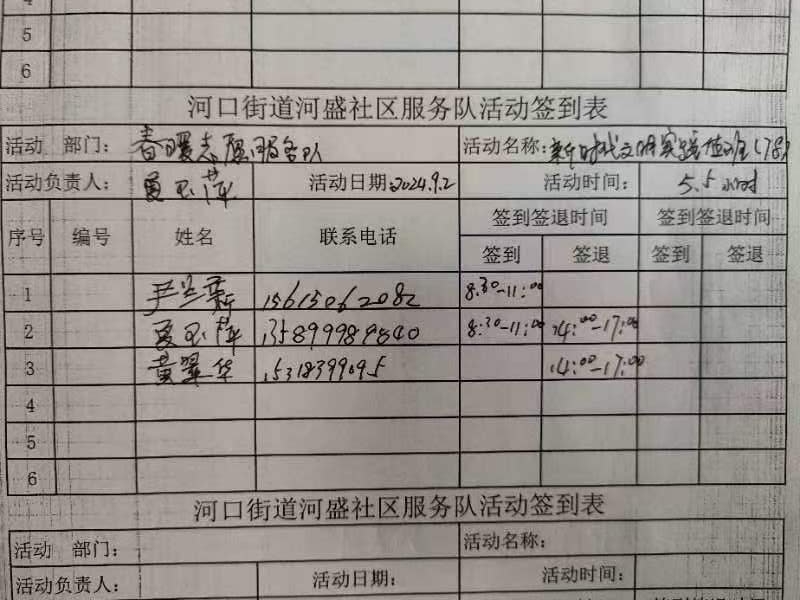 5
6
河口街道河盛社区服务队活动签到表
活动 部门: 春暖志愿服务队 活动名称: 新时代文明实践值班(78)
活动负责人: 夏玉萍 活动日期: 2024.9.2 活动时间: 5.5小时
序号 编号 姓名 联系电话 签到签退时间 签到签退时间
签到 签退 签到 签退
1 尹兰新 15615062082 8:30-11:00
2 夏玉萍 135899989840 8:30-11:00 14:00-17:00
3 黄翠华 15318399095 14:00-17:00
4
5
6
河口街道河盛社区服务队活动签到表
活动 部门: 活动名称:
活动负责人: 活动日期: 活动时间: